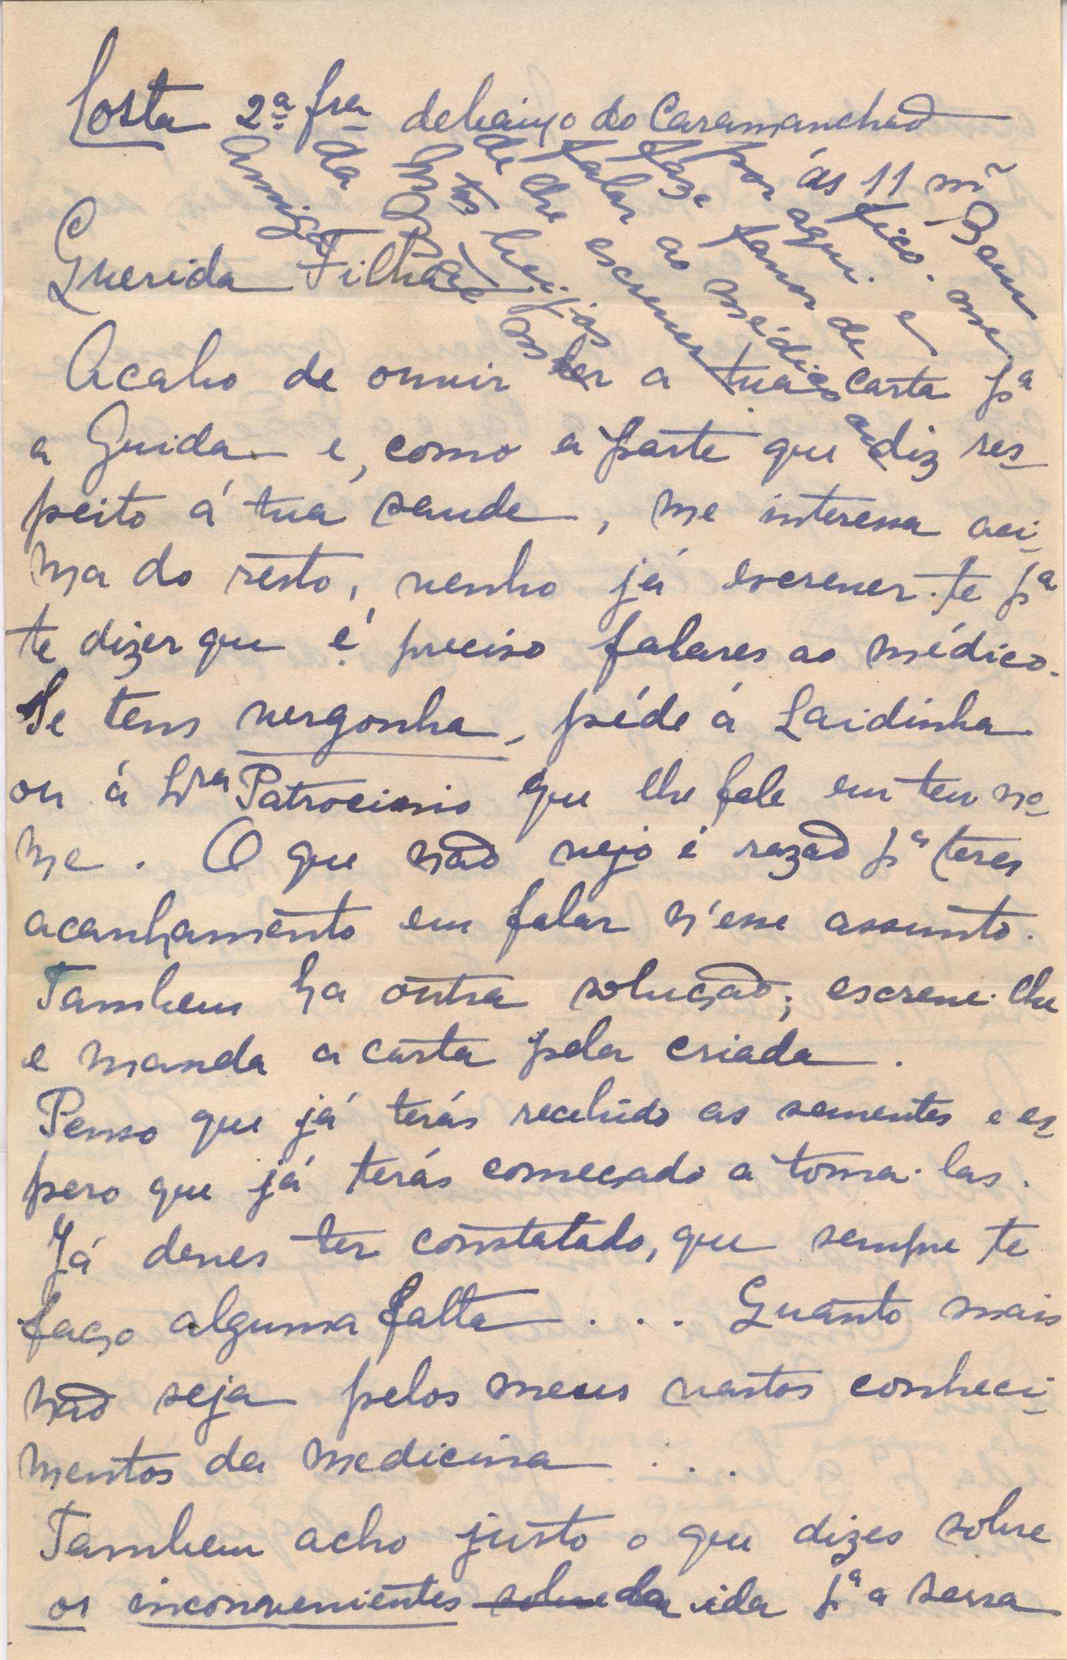 Costa 2ª fra debaixo do Caramanchão
ás 11 m
Querida Filha
Acabo de ouvir ler a tua carta pª
a Guida e, como a parte que diz res-
peito á tua saude, me interessa aci-
ma do resto, venho já escrever-te pª
te dizer que é preciso falares ao médico.
Se tens vergonha, péde á Laidinha
ou á Snra Patrocinio que lhe fale em teu no-
me. O que não vejo é razão pª teres
acanhamento em falar n'esse assunto.
Tambem ha outra solução; escreve-lhe
e manda a carta pela criada.
Penso que já terás recebido as sementes e es-
pero que já terás começado a toma-las.
Já deves ter constatado, que sempre te
faço alguma falta... Quanto mais
não seja pelos meus vastos conheci-
mentos da medicina...
Tambem acho justo o que dizes sobre
os inconvenientes sobre da ida pª a serra
Bem
me fico
por aqui. e
faze favor de
falar ao médico ou
de lhe escrever
btos beijos
da
Amiga